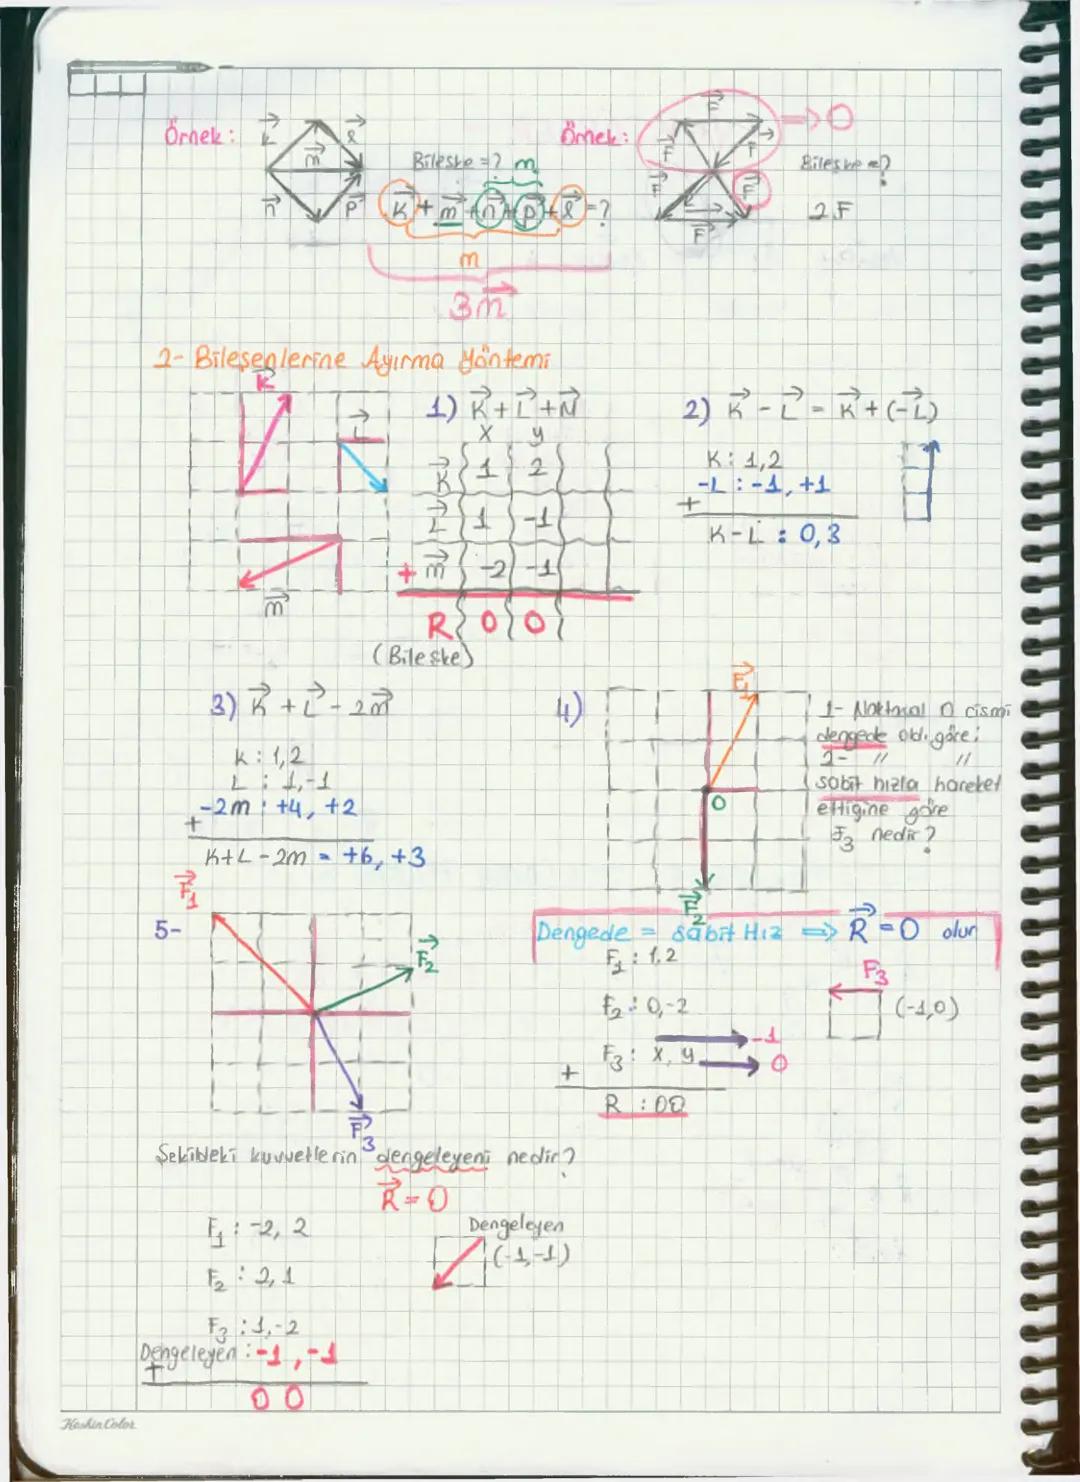 Örnek:
k
l
m
n
p
Bileşke =? m
K + m + n + p + l = ?
m
3m
Örnek:
F
F
F
F
F
F
=> 0
Bileşke =?
2F
2- Bileşenlerine Ayırma Yöntemi
K
L
m
1) K + L + M
x y
K 1 2
L 1 -1
+ m -2 -1
R 0 0
(Bileşke)
2) K - L = K + (-L)
K : 1,2
-L : -1, +1
+
K-L : 0,3
3) K + L - 2m
K : 1,2
L : 1,-1
-2m : +4, +2
+
K+L-2m = +6, +3
4)
F1
O
F2
1- Noktasal O cismi
dengede old. göre;
2- " "
sabit hızla hareket
ettiğine göre
F3 nedir?
Dengede = Sabit Hız => R = 0 olur
F1 : 1,2
F2 : 0,-2
F3 : x, y
-1
0
+
R : 00
F3
(-1,0)
5-
F1
F2
F3
Şekildeki kuvvetlerin dengeleyeni nedir?
R = 0
F1 : -2, 2
F2 : 2, 1
F3 : 1,-2
Dengeleyen : -1, -1
+
0 0
Dengeleyen
(-1,-1)
KeskinColor